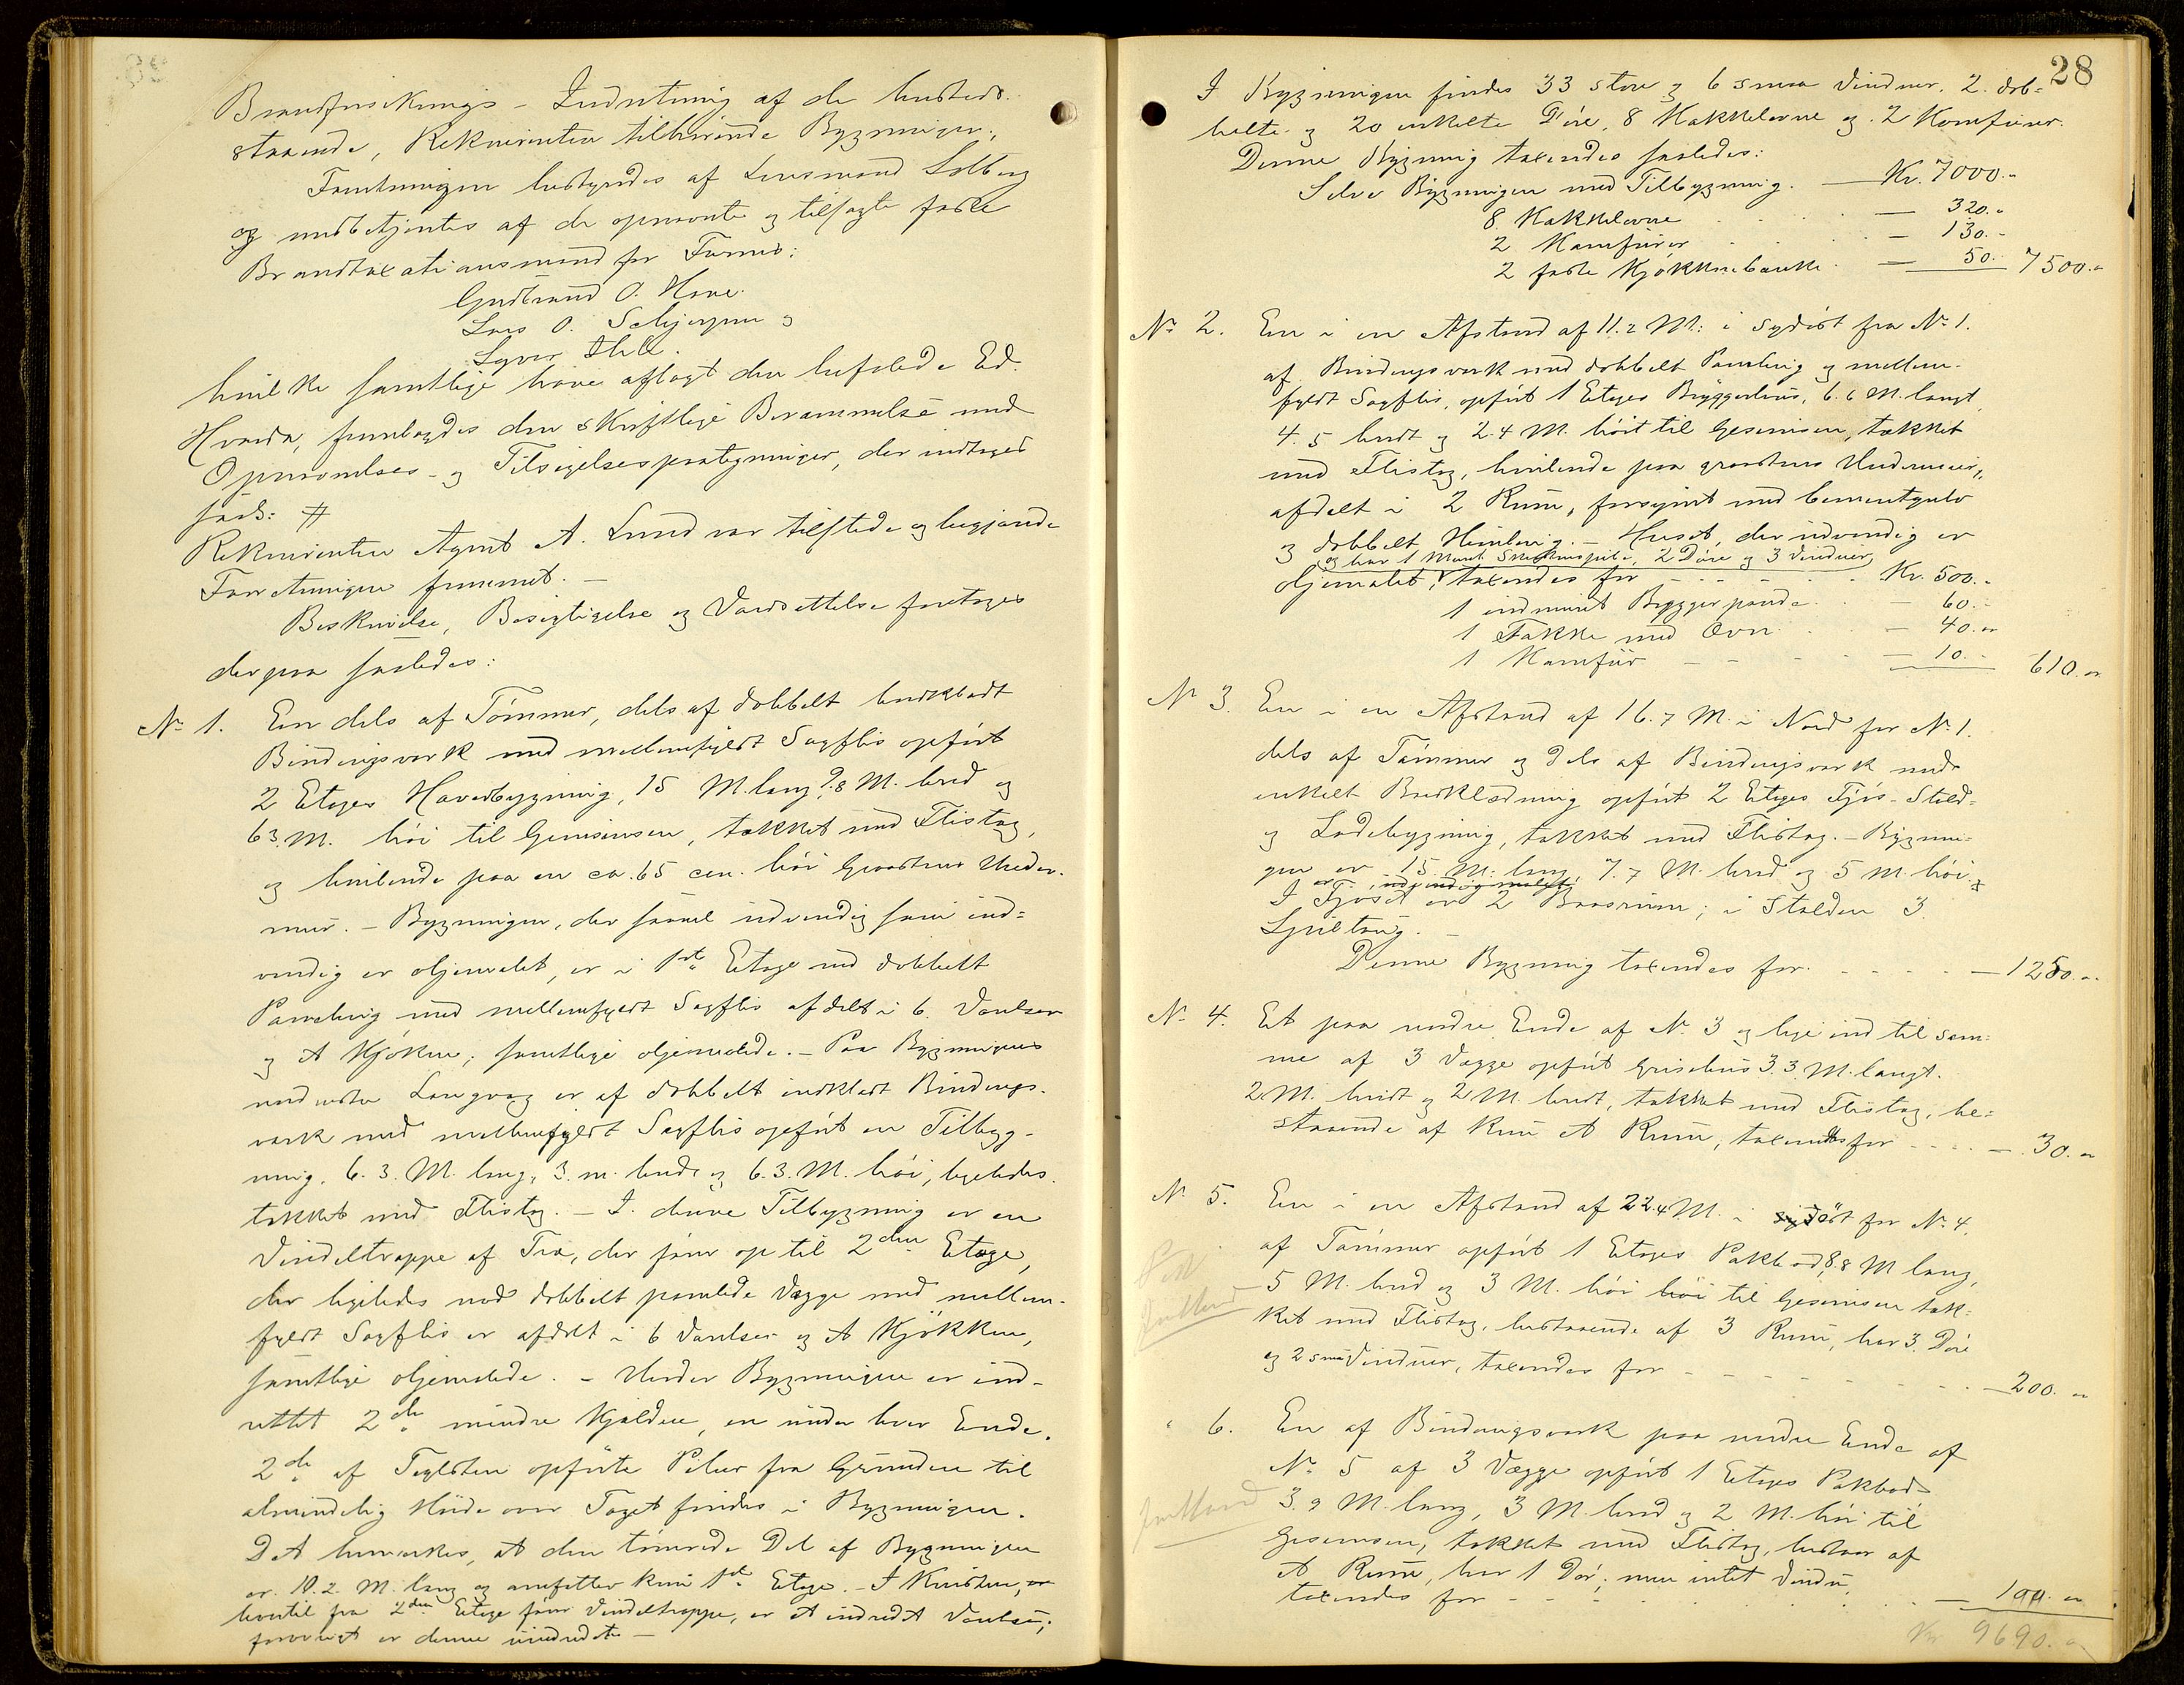 Brandforsikrings-Indretning af de hersteds
staaende, Rekvirenten tilhørende Bygninger.
Forretningen bestyredes af Lensmand Solberg
og medbetjentes af de opnævnte og tilsagte faste
Brandtaxationsmænd for Furnes:
Gudbrand O. Hove.
Lars O. Schjerpen og
Syver Ihle.
hvilke samtlige have aflagt den befalede Ed.
Hvorda, fremlagdes den skriftlige Berammelse med
Opnævnelses- og Tilsigelsespaategninger, der indtages
saal: #
Rekvirenten Agent A. Lund var tilstede og begjærede
Forretningen fremmet. —
Beskrivelse, Besigtigelse og Værdsættelse foretages
derpaa saaledes:
No 1. En dels af Tømmer, dels af dobbelt bordklædt
Bindingsværk med mellemfyldt Sagflis opført
2 Etages Hovedbygning, 15 M. lang, 7.8 M. bred og
6.3 M. høi til Gesimsen, tækket med Flistag,
og hvilende paa en ca. 65 cm. høi Graastens Under-
mur. — Bygningen, der saavel udvendig som ind=
vendig er oljemalet, er i 1ste Etage med dobbelt
Paneling med mellemfyldt Sagflis afdelt i 6 Værelser
og et Kjøkken; samtlige oljemalede. — Paa Bygningens
nordvestre Langvæg er af dobbelt bordklædt Bindings-
værk med mellemfyldt Sagflis opført en Tilbyg-
ning, 6.3 M. lang, 3 m. bred og 6.3 M. høi, ligeledes
tækket med Flistag. — I denne Tilbygning er en
Vindeltrappe af Træ, der fører op til 2den Etage,
der ligeledes med dobbelt panelede Vægge med mellem-
fyldt Sagflis er afdelt i 6 Værelser og et Kjøkken,
samtlige oljemalede. — Under Bygningen er ind-
rettet 2de mindre Kjældere, en under hver Ende.
2de af Teglsten opførte Piber fra Grunden til
almindelig Høide over Taget findes i Bygningen.
Det bemærkes, at den tømrede Del af Bygningen
er 10.2 M. lang og omfatter kun 1ste Etage. — I Kvisten, er
hvortil fra 2den Etage fører Vindeltrappe, er et indredet Værelse;
forøvrigt er denne uindredet. —
28
I Bygningen findes 33 store og 6 smaa Vinduer, 2 dob=
belte og 20 enkelte Døre, 8 Kakkelovne og 2 Komfurer.
Denne Bygning taxeredes saaledes:
Selve Bygningen med Tilbygning. — Kr. 7000.-
8 Kakkelovne — 320.-
2 Komfurer — 130.-
2 faste Kjøkkenbænke — 50.- 7500.-
No 2. En i en Afstand af 11.2 M. i Sydøst fra No 1.
af Bindingsværk med dobbelt Paneling og mellem-
fyldt Sagflis, opført 1 Etages Bryggerhus, 6.6 M. langt,
4.5 bredt og 2.4 M. høit til Gesimsen, tækket
med Flistag, hvilende paa graastens Undermur,
afdelt i 2 Rum, forsynet med Cementgulv
og dobbelt Himling. — Huset, der udvendig er
og har 1 Muret Skorstenspibe, 2 Døre og 3 Vinduer
oljemalet, taxeredes for — Kr. 500.-
1 indmuret Bryggerpande — 60.-
1 Takke med Ovn — 40.-
1 Komfur — 10.- 610.-
No 3. En i en Afstand af 16.7 M. i Nord for No 1.
dels af Tømmer og dels af Bindingsværk med
enkelt Bordklædning opført 2 Etages Fjøs- Stald-
og Ladebygning, tækket med Flistag. — Bygnin-
gen er 15 M. lang, 7.7 M. bred og 5 M. høi.
I Fjøset er 2 Baasrum; i Stalden 3
Spiltaug. —
Denne Bygning taxeredes for — 1250.-
No 4. Et paa nordre Ende af No 3 og lige ind til sam-
me af 3 Vægge opført Grisehus 3.3 M. langt,
2 M. bredt og 2 M. høit, tækket med Flistag, be=
staaende af kun et Rum, taxeredes for — 30.-
No 5. En i en Afstand af 22.4 M. i øst for No 4.
af Tømmer opført 1 Etages Pakbod, 8.8 M lang,
5 M. bred og 3 M. høi høi til Gesimsen tæk-
ket med Flistag, bestaaende af 3 Rum, har 3 Døre
og 2 smaa Vinduer, taxeredes for — 200.-
" 6. En af Bindingsværk paa nordre Ende af
No 5 af 3 Vægge opført 1 Etages Pakbod
3.9 M. lang, 3 M. bred og 2 M. høi til
Gesimsen, tækket med Flistag, bestaar af
et Rum, har 1 Dør; men intet Vindu,
taxeredes for — 100.-
Kr 9690.-